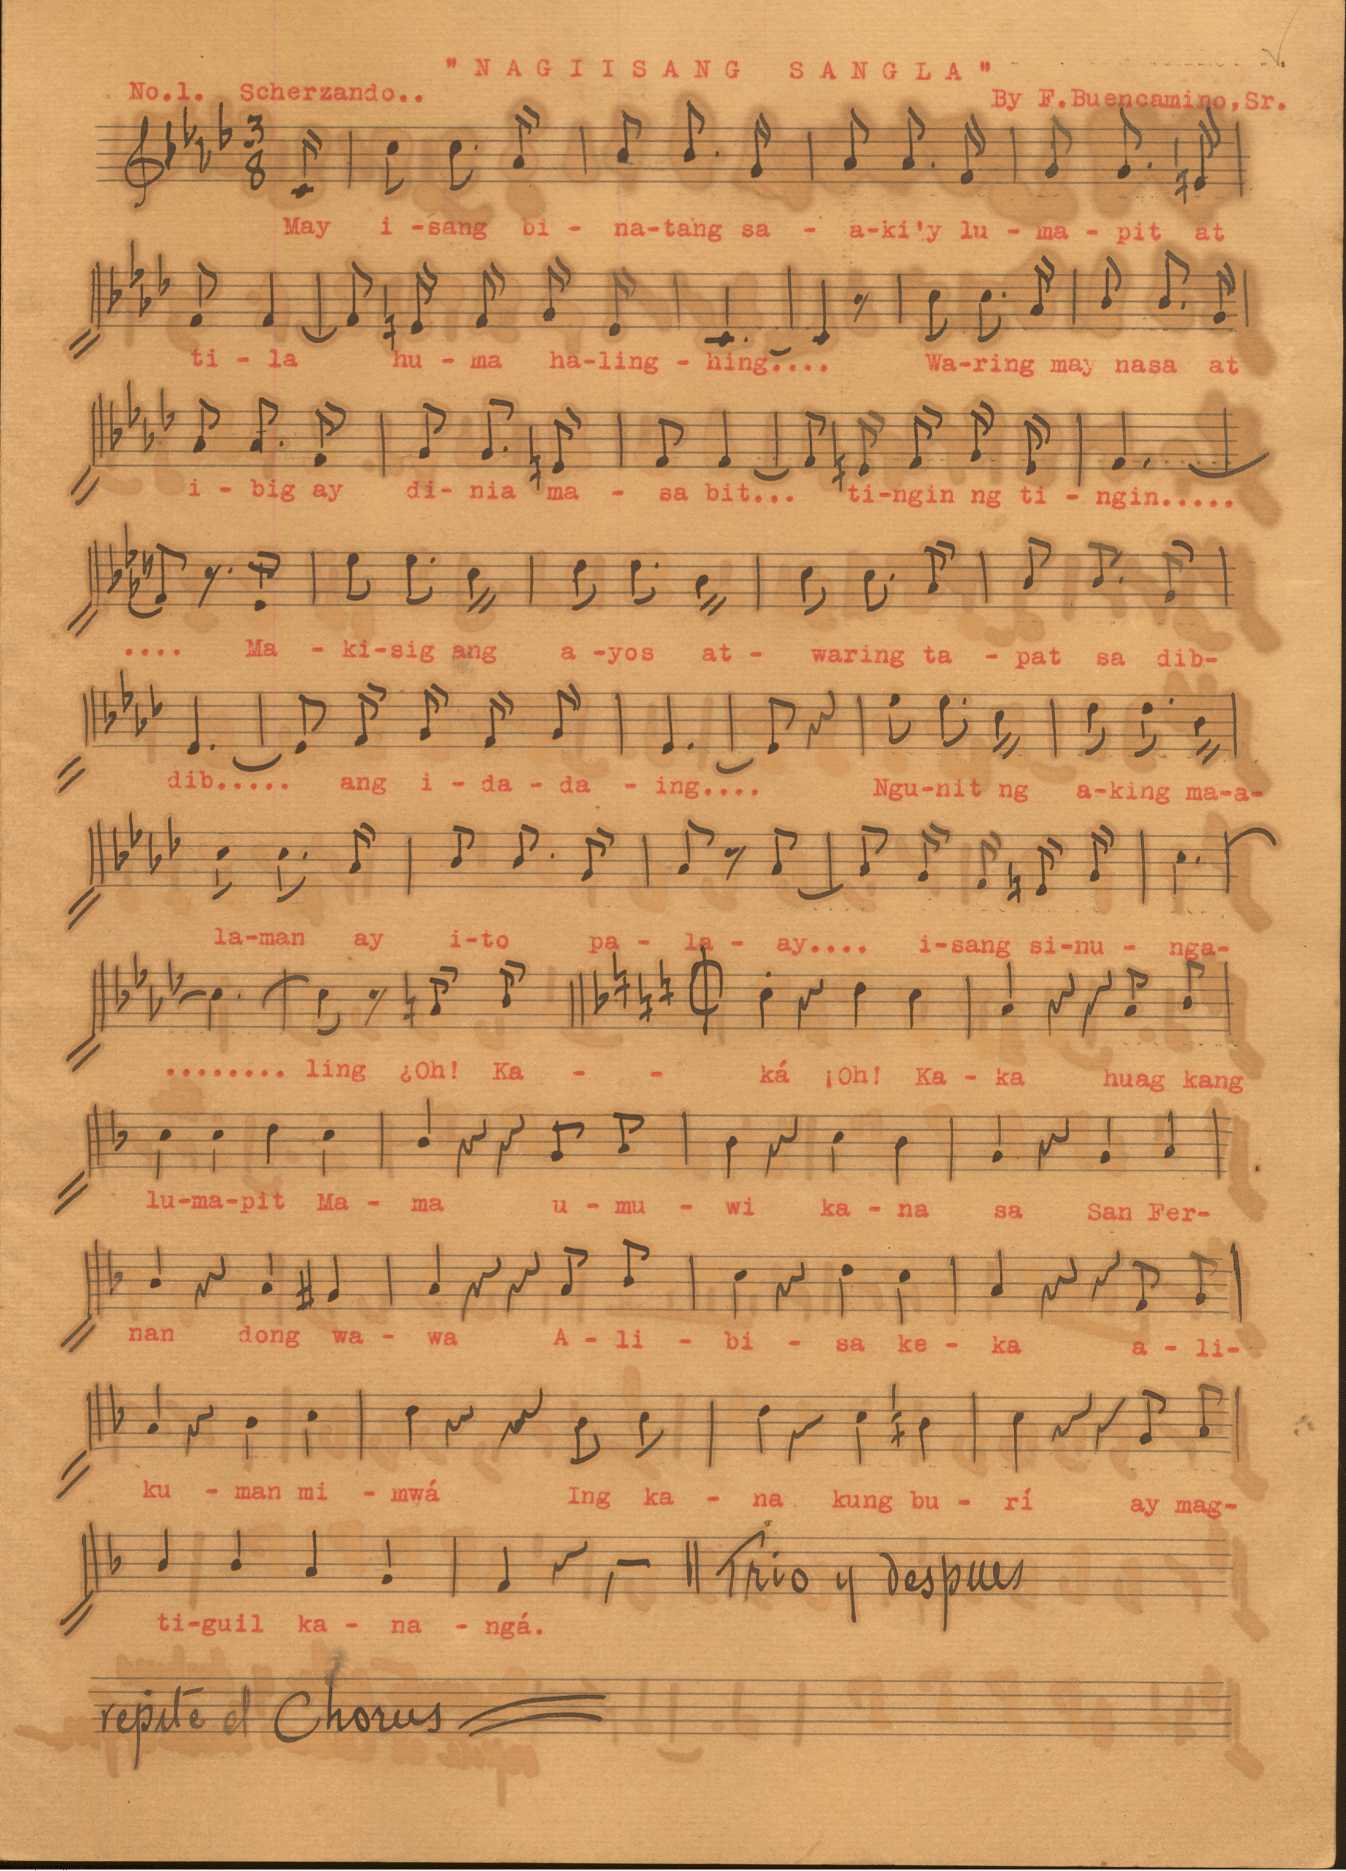 "NAGIISANG SANGLA"
No.1. Scherzando..
By F.Buencamino,Sr.
3
8
May i -sang bi - na-tang sa - a-ki'y lu - ma - pit at
ti - la hu - ma ha-ling - hing.... Wa-ring may nasa at
i - big ay di- nia ma - sa bit... ti-ngin ng ti - ngin.....
.... Ma - ki-sig ang a -yos at - waring ta - pat sa dib-
dib..... ang i - da - da - ing.... Ngu-nit ng a-king ma-a-
la-man ay i-to pa - la - ay.... i-sang si-nu - nga-
........ ling ¿Oh! Ka - - ká ¡Oh! Ka - ka huag kang
lu-ma-pit Ma - ma u - mu - wi ka - na sa San Fer-
nan dong wa - wa A - li - bi - sa ke - ka a - li-
ku - man mi - mwá Ing ka - na kung bu - rí ay mag-
ti-guil ka - na - ngá.
Trio y despues
repite el Chorus